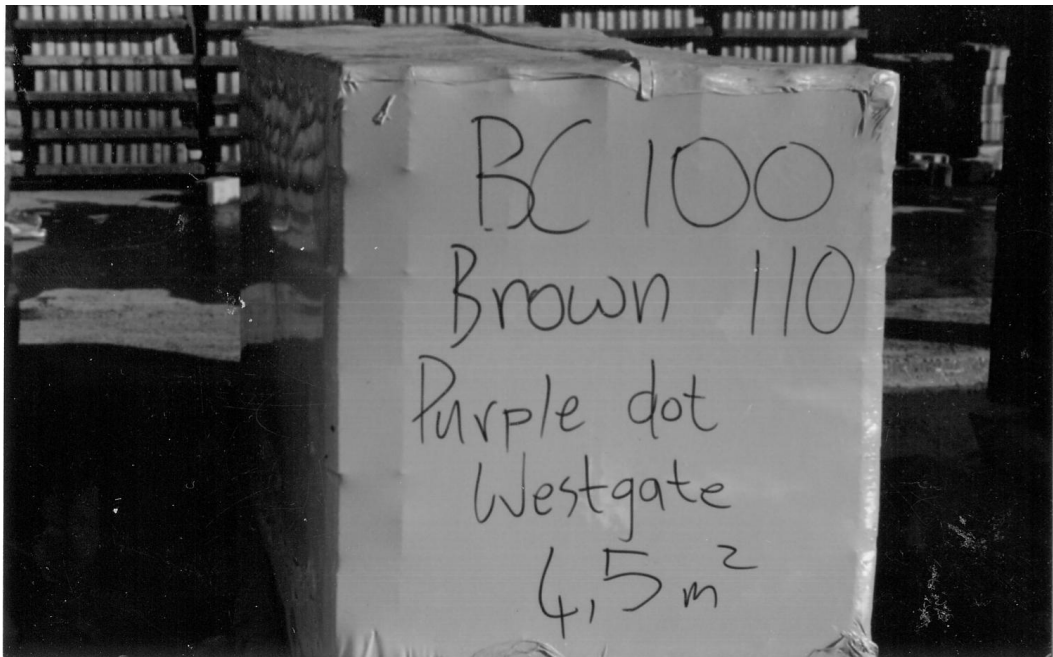 BC 100
Brown 110
Purple dot
Westgate
4,5 m²